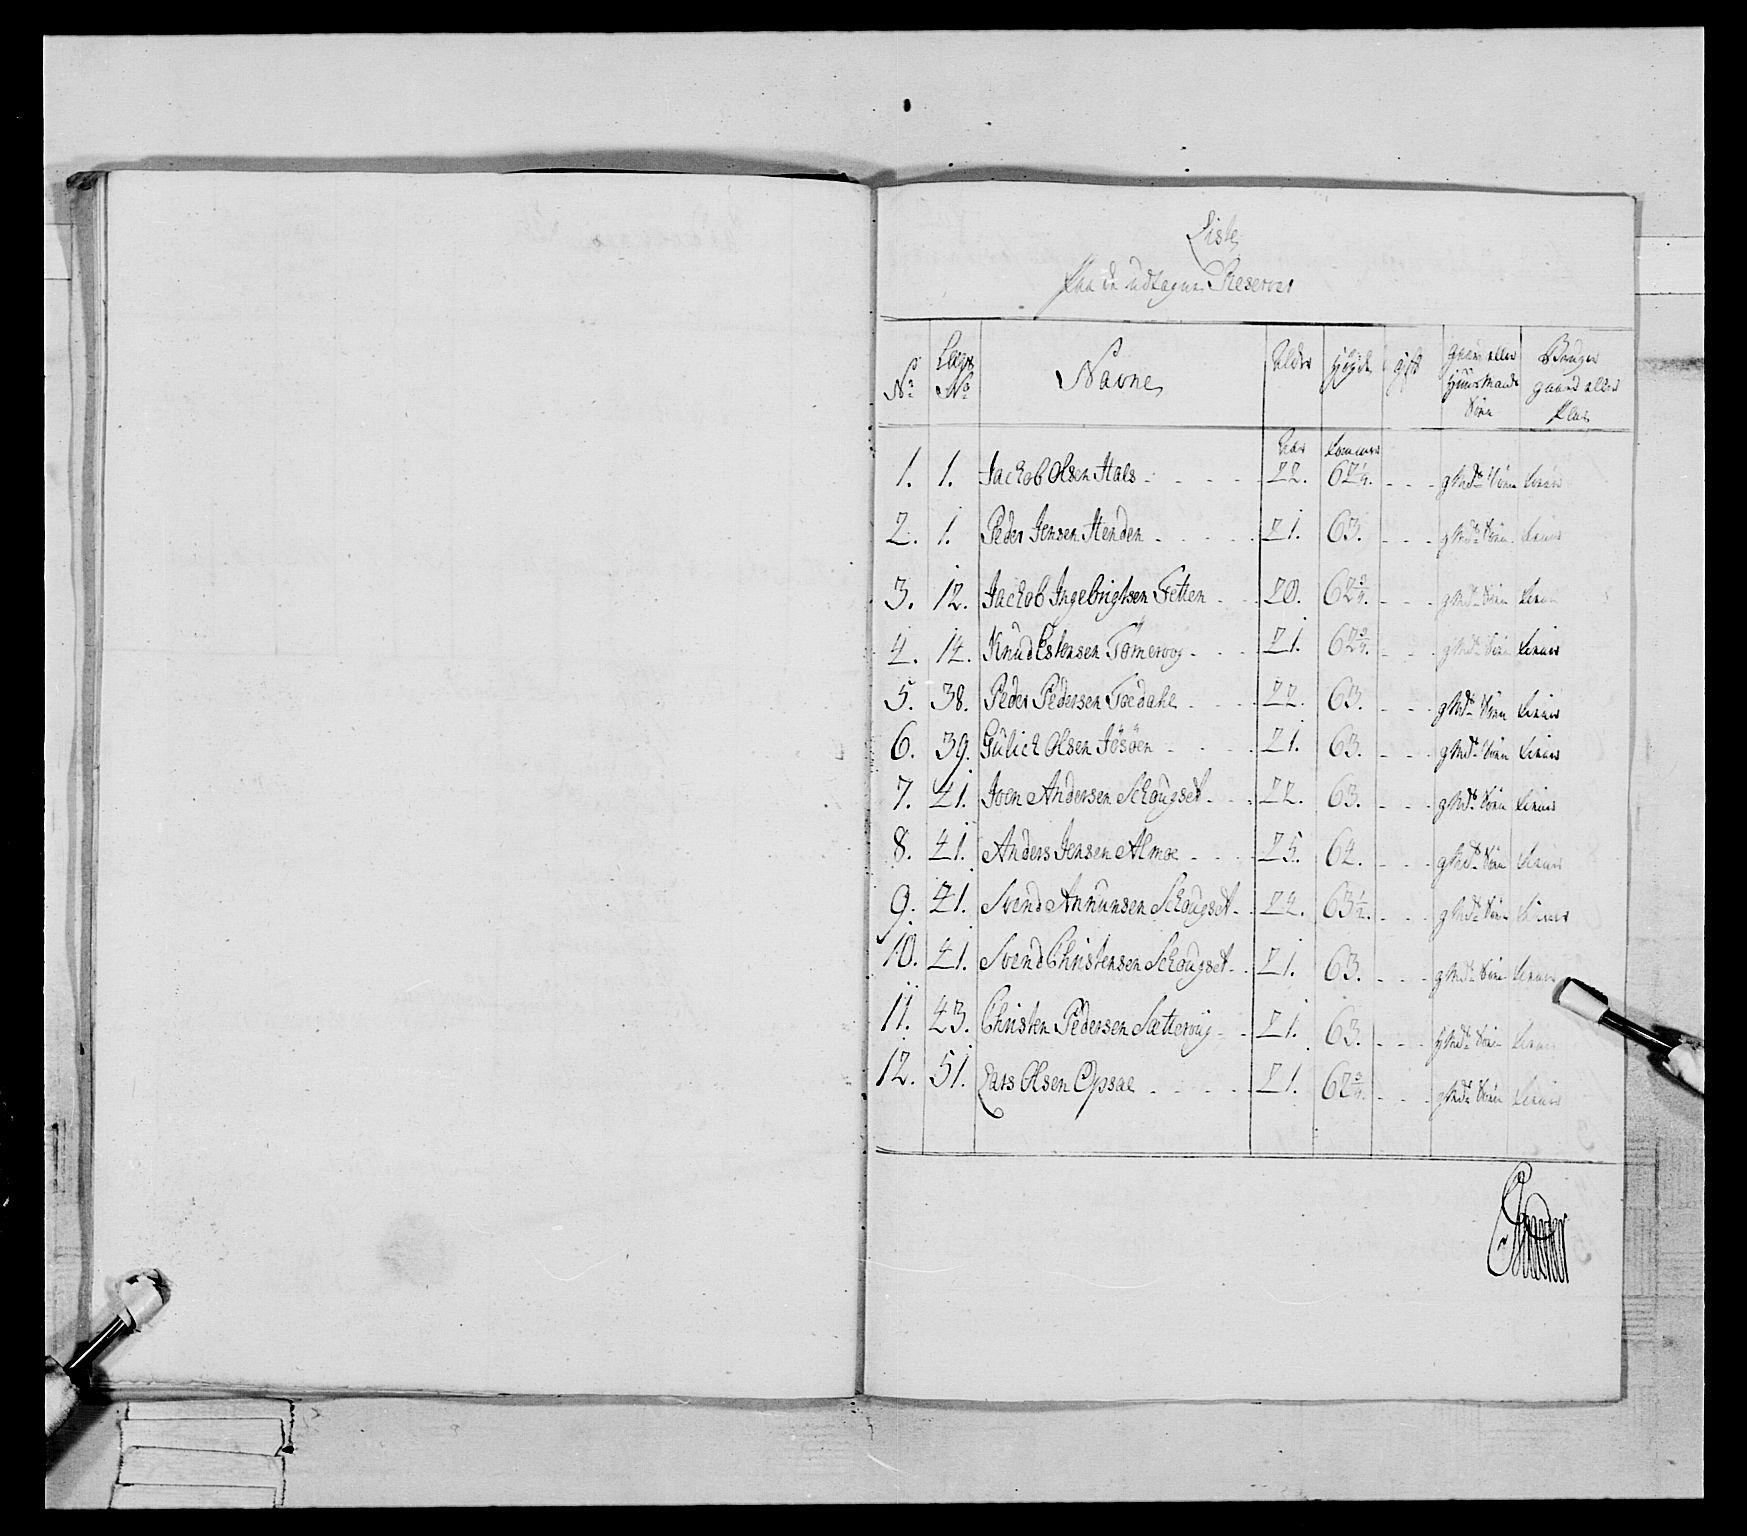 Liste
Paa de udtagne Reserver
No Lægs No Navne Alder Höyde gift gaard eller Huusmands Sönn Bruger gaard eller Plas
Aar Tommer
1. 1. Jachob Olsen Hals 22. 62 1/4. gMds Sönn
2. 1. Peder Jensen Henden 21. 63. gMds Sönn
3. 12. Jachob Ingebrigtsen Fetten 20. 62 3/4. gMds Sönn
4. 14. Knud Estensen Tömervog 21. 62 3/4. gMds Sönn
5. 38. Peder Pedersen Toedahl 22. 63. gMds Sönn
6. 39. Gulich Olsen Jösöen 21. 63. gMds Sönn
7. 41. Joen Andersen Schougset 22. 63. gMds Sönn
8. 41. Anders Jensen Almoe 25. 64. gMds Sönn
9. 41. Svend Annunsen Schougset 24. 63 1/2. gMds Sönn
10. 41. Svend Christensen Schougset 21. 63. gMds Sönn
11. 43. Christen Pedersen Sættervug 21. 63. gMds Sönn
12. 51. Lars Olsen Opsae 21. 62 3/4. gMds Sönn